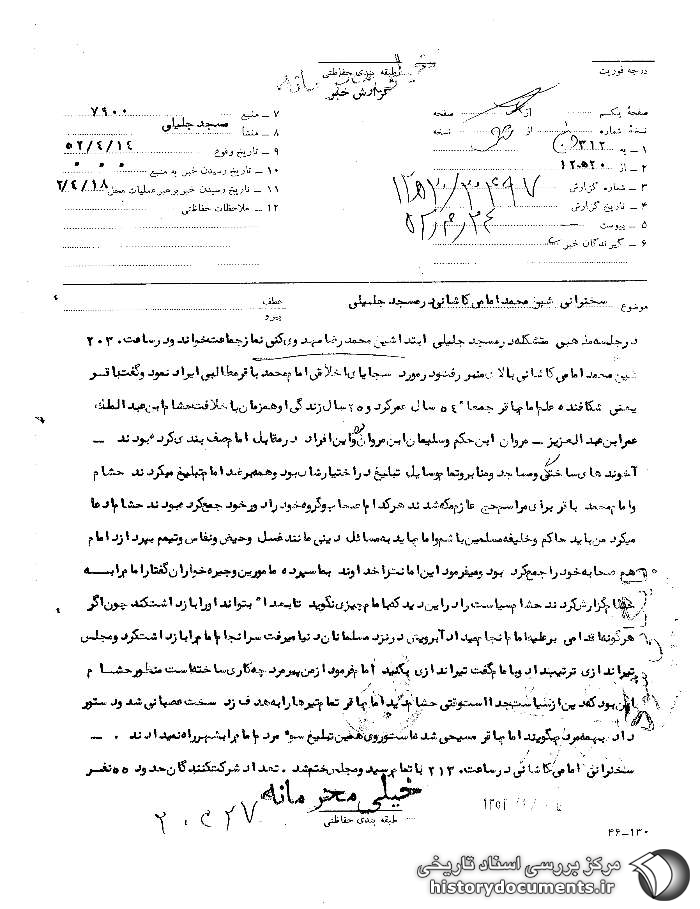 طبقه بندی حفاظتی
گزارش خبر
درجه فوریت
صفحهٔ یکم از صفحه
نسخهٔ شماره از نسخه
۱ ـ به ۳۱۲
۲ ـ از ۱۲۰۵۲۰
۳ ـ شماره گزارش
۴ ـ تاریخ گزارش
۵ ـ پیوست
۶ ـ گیرندگان خبر
۷ ـ منبع ۷۹۰۰
۸ ـ منشأ مسجد جلیلی
۹ ـ تاریخ وقوع ۵۲/۴/۱۴
۱۰ ـ تاریخ رسیدن خبر به منبع
۱۱ ـ تاریخ رسیدن خبر برهبر عملیات محلی ۲/۴/۱۸
۱۲ ـ ملاحظات حفاظتی
موضوع سخنرانی شیخ محمد امامی کاشانی در مسجد جلیلی
عطف
پیرو
در جلسه مذهبی متشکله در مسجد جلیلی ابتدا شیخ محمد رضا مهدوی کنی نماز جماعت خواند و در ساعت ۲۰۳۰
شیخ محمد امامی کاشانی بالای منبر رفت و در مورد سجایای اخلاقی امام محمد باقر مطالبی ایراد نمود و گفت باقر
یعنی شکافنده علم امام باقر جمعا ۵۴ سال عمر کرد و ۲۵ سال زندگی او همزمان با خلافت هشام ابن عبدالملک
عمر ابن عبدالعزیز ـ مروان ابن حکم و سلیمان ابن مروان و این افراد در مقابل امام صف بندی کرده بودند ـ
آخوندهای ساختگی و مساجد و منابر و تمام وسایل تبلیغ در اختیارشان بود و همه بر ضد امام تبلیغ میکردند هشام
و امام محمد باقر برای مراسم حج عازم مکه شدند هر کدام اصحاب و گروه خود را دور خود جمع کرده بودند هشام ادعا
میکرد من باید حاکم و خلیفه مسلمین باشم و امام باید به مسائل دینی مانند غسل و حیض و نفاس و تیمم بپردازد امام
هم صحابه خود را جمع کرده بود و میفرمود این امانت را خداوند بما سپرده مامورین و جیره خواران گفتار امام را به
هشام گزارش کردند هشام سیاست را در این دید که با امام چیزی نگوید تا بعدا بتواند او را بازداشت کند چون اگر
هر گونه اقدامی بر علیه امام انجام میداد آبرویش در نزد مسلمانان دنیا میرفت سرانجام امام را بازداشت کرد و مجلس
تیراندازی ترتیب داد و با امام گفت تیراندازی بکنید امام فرمود از من پیرمرد چه کاری ساخته است منظور هشام
این بود که دین از سیاست جدا است وقتی هشام دید امام باقر تمام تیرها را به هدف زد سخت عصبانی شد و دستور
داد بهمه مردم بگویند امام باقر مسیحی شده است و روی همین تبلیغ سوء مردم امام را بشهر راه نمیدادند ۰ ـ
سخنرانی امامی کاشانی در ساعت ۲۱۳۰ با تمام رسید و مجلس ختم شد ۰ تعداد شرکت کنندگان حدود ۵۵ نفر
خیلی محرمانه
طبقه بندی حفاظتی
۴۶-۱۳۰
مرکز بررسی اسناد تاریخی
historydocuments.ir